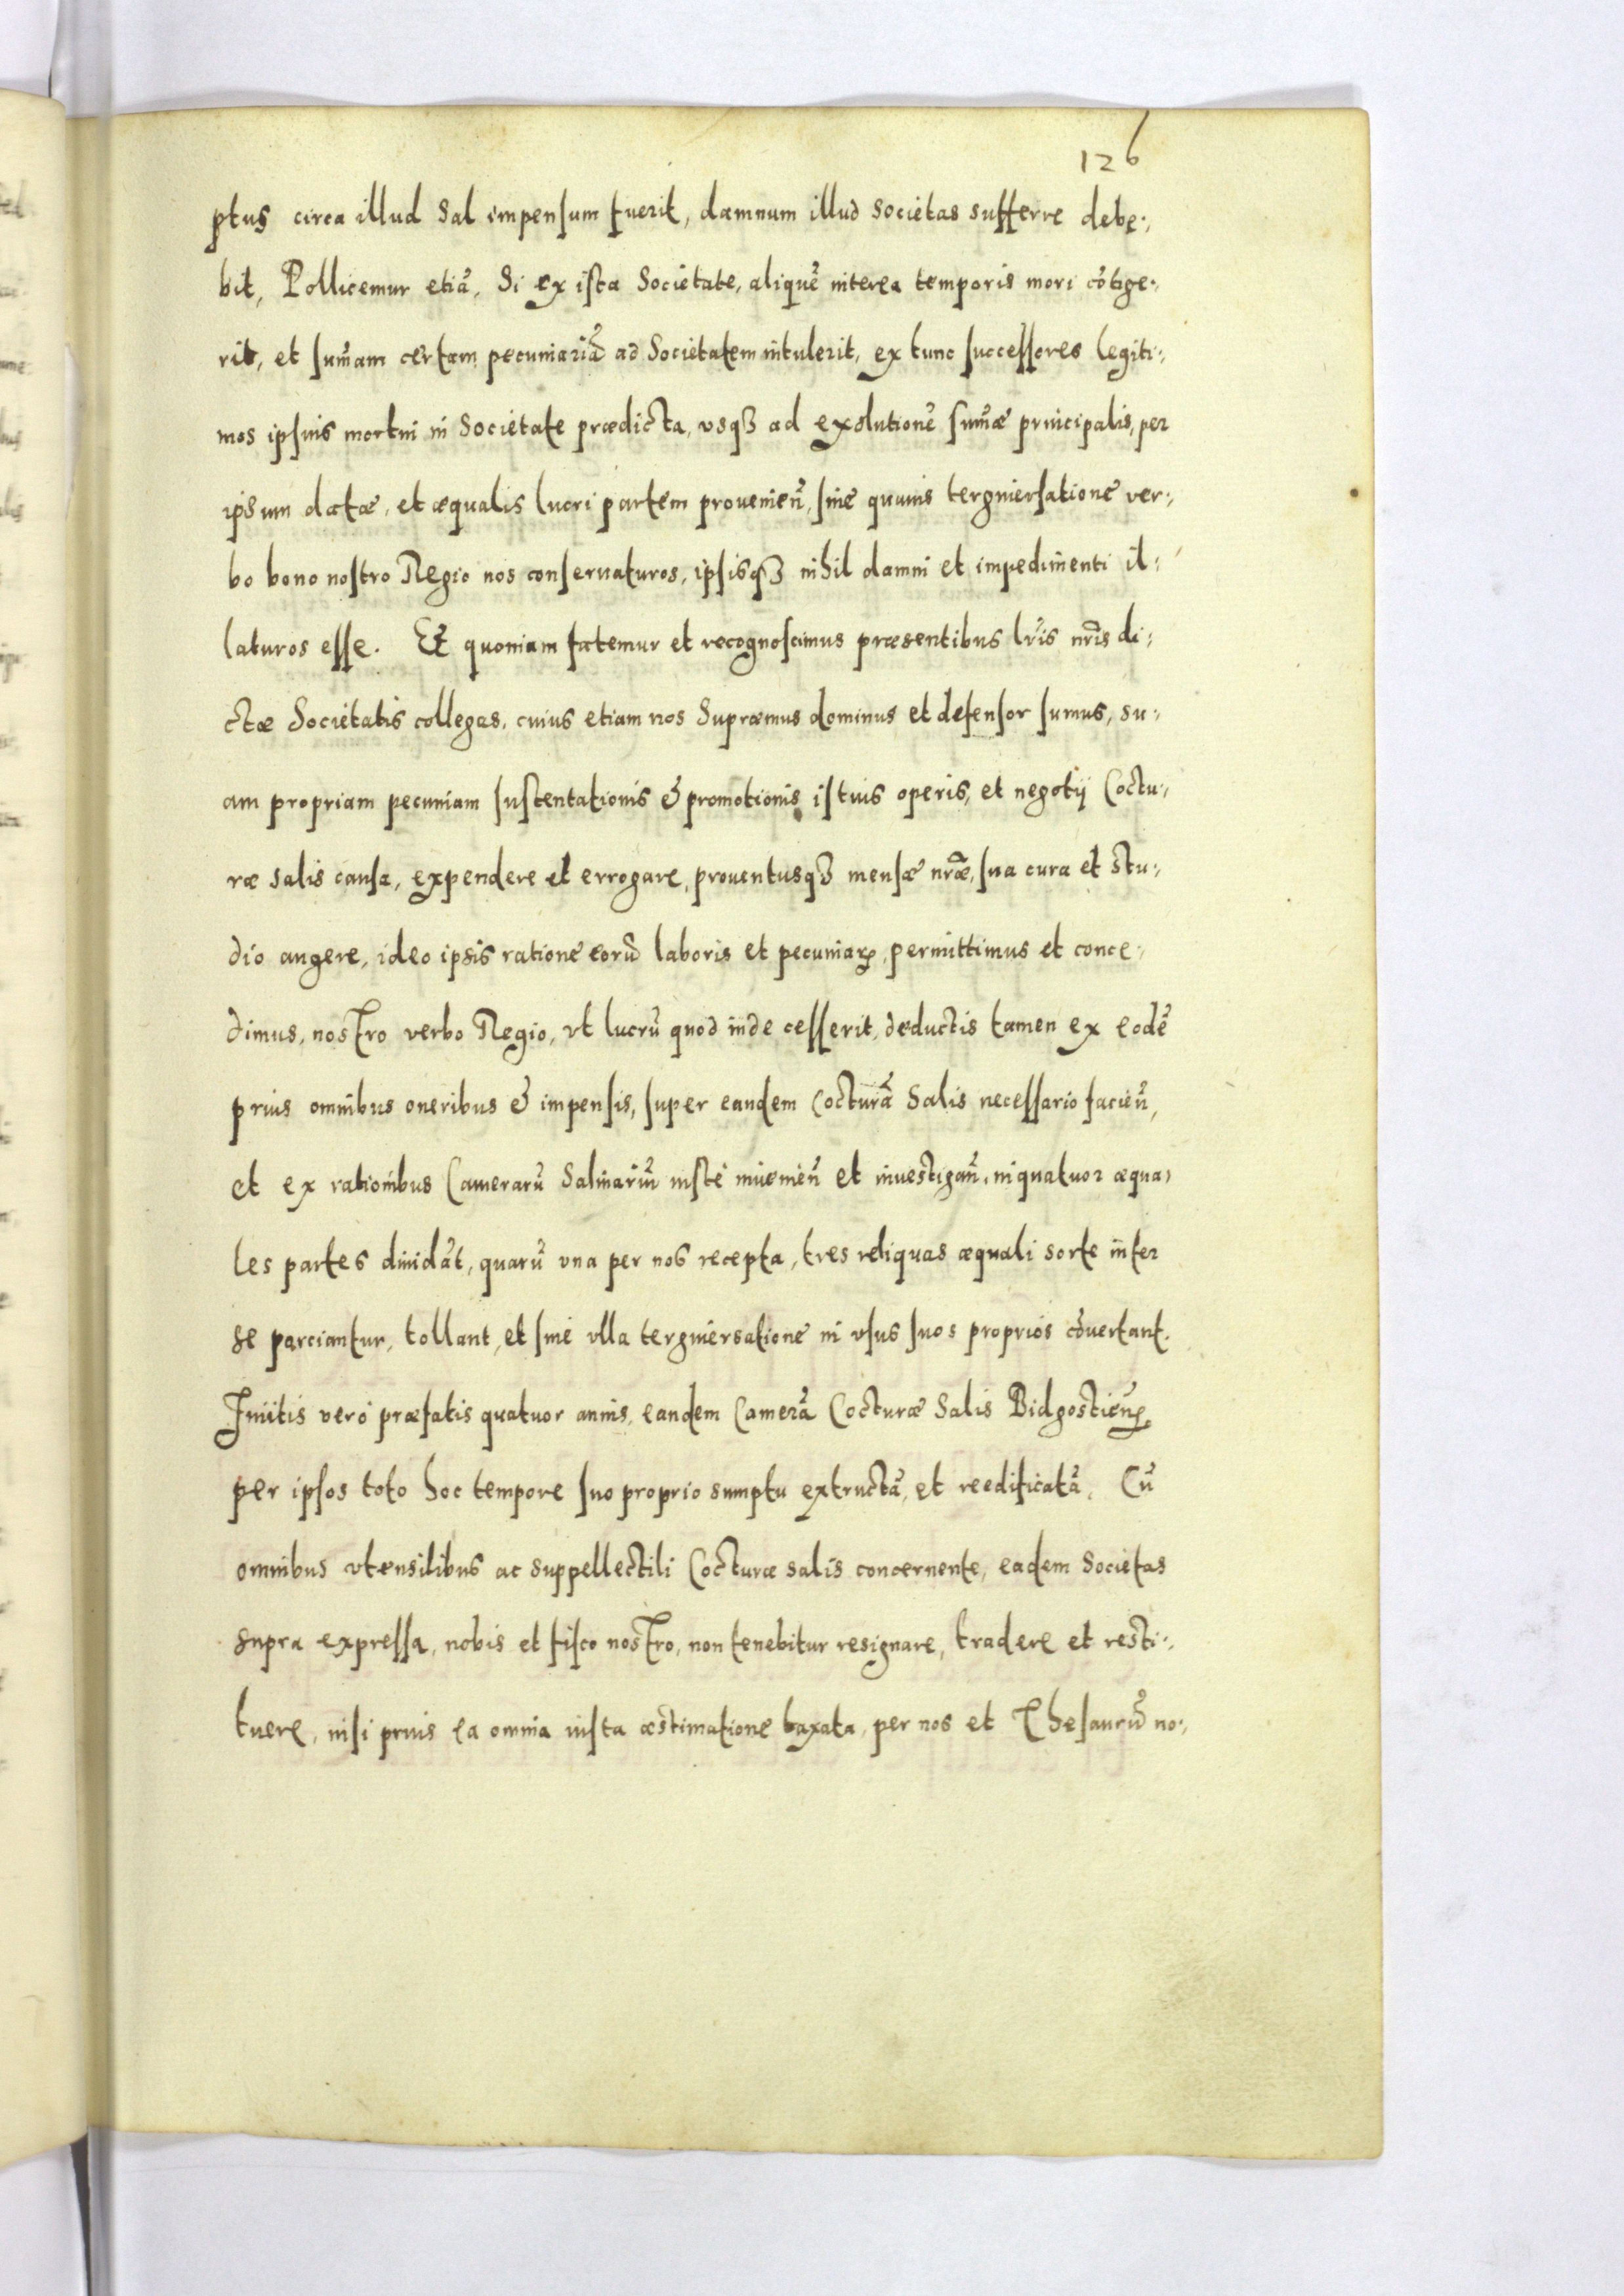 126
ptus circa illud Sal impensum fuerit, damnum illud Societas sufferre debe:,
bit, Pollicemur etiā, Si ex ista Societate, aliquē interea temporis mori cōtige:,
rit, et sum̄am certam pecuniariā ad Societatem intulerit, ex tunc successores legiti:,
mos ipsius mortui in Societate prædicta, vsqȝ ad exolutionē sum̄æ principalis, per
ipsum datæ, et æqualis lucri partem provenien̄, sine quauis tergiuersatione ver:,
bo bono nostro Regio nos conseruaturos, ipsisqȝ nihil damni et impedimenti il:,
laturos esse. Et quoniam fatemur et recognoscimus præsentibus lr̄is nr̄is di:,
ctæ Societatis collegas, cuius etiam nos Supræmus dominus et defensor sumus, su:,
am propriam pecuniam sustentationis & promotionis istius operis, et negotij Coctu:,
ræ salis causa, expendere et errogare, prouentusqȝ mensæ nr̄æ, sua cura et stu:,
dio augere, ideo ipsis ratione eorū laboris et pecuniaꝝ, permittimus et conce:,
dimus, nostro verbo Regio, vt lucrū quod inde cesserit, deductis tamen ex eodē
prius omnibus oneribus & impensis, super eandem Cocturā Salis necessario facien̄,
et ex rationibus Camerarū Salinariū iuste inuenien̄ et inuestigan̄, in quatuor æqua:,
les partes diuidāt, quarū vna per nos recepta, tres reliquas æquali sorte inter
se parciantur, tollant, et sine vlla tergiuersatione in vsus suos proprios cōuertant.
Finitis verò præfatis quatuor annis, eandem Camerā Cocturæ Salis Bidgostien̄,
per ipsos toto hoc tempore suo proprio sumptu extructā, et reedificatā, Cū
omnibus vtensilibus ac suppellectili Cocturæ salis concernente, eadem Societas
supra expressa, nobis et fisco nostro, non tenebitur resignare, tradere et resti:,
tuere, nisi prius ea omnia iusta æstimatione taxata, per nos et Thesaurū no:,